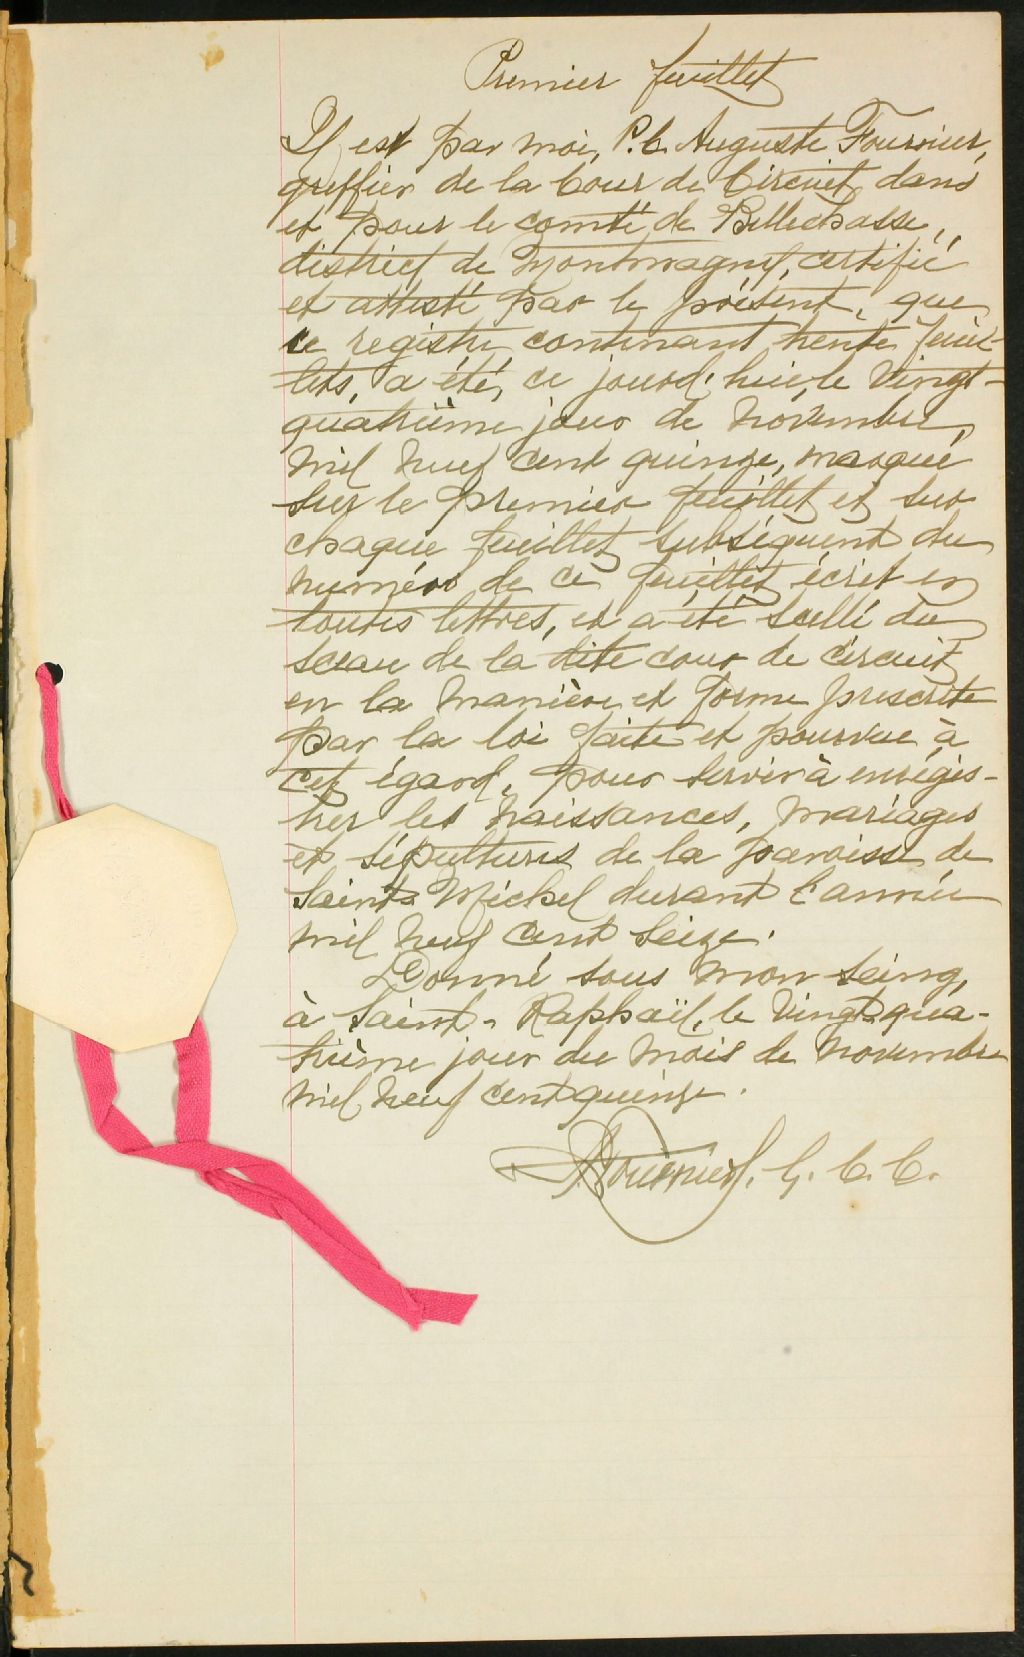 Premier feuillet
Il est par moi, P.C. Auguste Fournier,
greffier de la Cour de Circuit, dans
et pour le comté de Bellechasse,
district de Montmagny, certifié
et attesté par le présent, que
le registre contenant trente feuil-
lets, a été, ce jourd'hui, le vingt-
quatrième jour de novembre,
mil neuf cent quinze, marqué
sur le premier feuillet et sur
chaque feuillet subséquent du
numéro de ce feuillet écrit en
toutes lettres, et a été scellé du
sceau de la dite cour de circuit
en la manière et forme prescrite
par la loi faite et pourvue à
cet égard, pour servir à enrégis-
trer les naissances, mariages
et sépultures de la paroisse de
Saint-Michel durant l'année
mil neuf cent seize.
Donné sous mon seing,
à Saint-Raphaël, le vingt-qua-
trième jour du mois de novembre
mil neuf cent quinze.
Fournier, G. C. C.